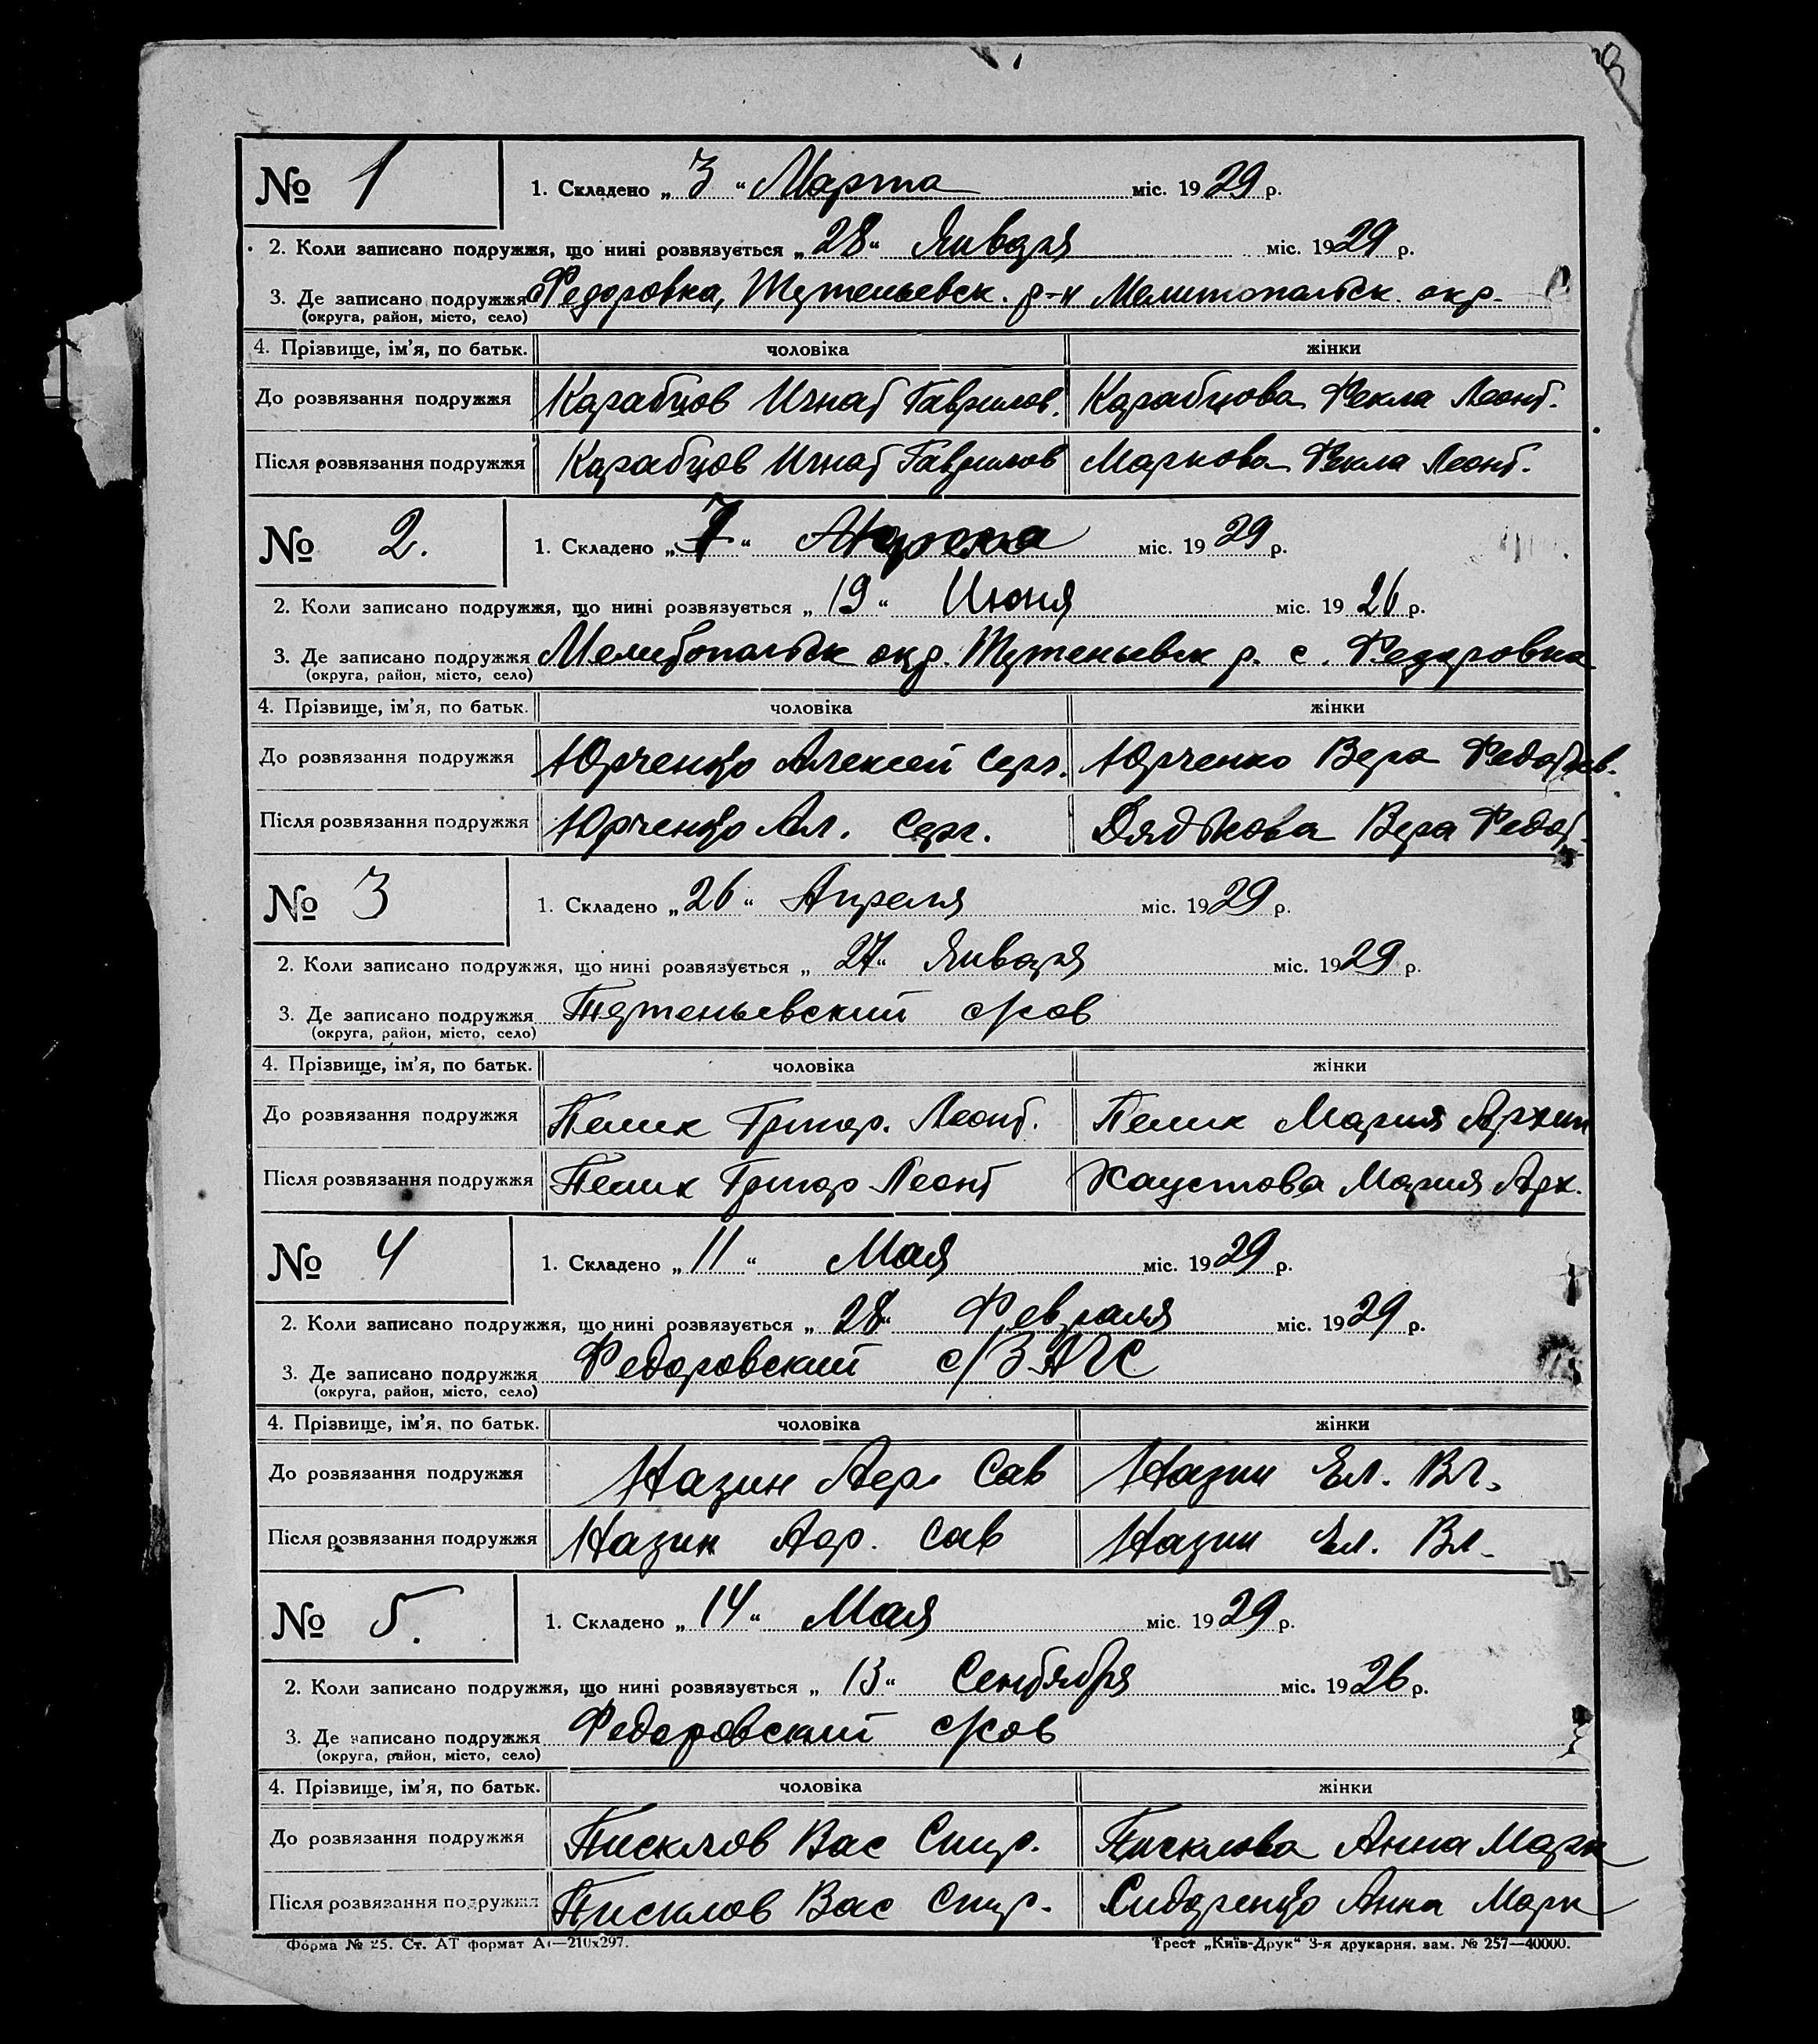 № 1
1. Складено „3“ Марта міс. 1929 р.
2. Коли записано подружжя, що нині розвязується „28“ Января міс. 1929 р.
3. Де записано подружжя Федоровка, Тутеньевск. р-н Мелитопальск. окр.
(округа, район, місто, село)
4. Прізвище, ім’я, по батьк. чоловіка жінки
До розвязання подружжя Карабцов Игнат Гаврилов. Карабцова Фекла Леонт.
Після розвязання подружжя Карабцов Игнат Гаврилов Маркова Фекла Леонт.
№ 2.
1. Складено „7“ міс. 1929 р.
2. Коли записано подружжя, що нині розвязується „19“ Июня міс. 1926 р.
3. Де записано подружжя Мелитопальск окр. Тутеньевск р. с. Федоровка
(округа, район, місто, село)
4. Прізвище, ім’я, по батьк. чоловіка жінки
До розвязання подружжя Юрченко Алексей Серг. Юрченко Вера Федотьев.
Після розвязання подружжя Юрченко Ал. Серг. Дядькова Вера Федот.
№ 3
1. Складено „26“ Апреля міс. 1929 р.
2. Коли записано подружжя, що нині розвязується „27“ Января міс. 1929 р.
3. Де записано подружжя Тутеньевский с/сов
(округа, район, місто, село)
4. Прізвище, ім’я, по батьк. чоловіка жінки
До розвязання подружжя Пелих Григор. Леонт. Пелих Мария Архип
Після розвязання подружжя Пелих Григор Леонт Хаустова Мария Арх.
№ 4
1. Складено „11“ Мая міс. 1929 р.
2. Коли записано подружжя, що нині розвязується „28“ Февраля міс. 1929 р.
3. Де записано подружжя Федоровский с/ЗАГС
(округа, район, місто, село)
4. Прізвище, ім’я, по батьк. чоловіка жінки
До розвязання подружжя Назин Сав Назин Ел. Вл.
Після розвязання подружжя Назин Сав Назин Ел. Вл.
№ 5.
1. Складено „14“ Мая міс. 1929 р.
2. Коли записано подружжя, що нині розвязується „13“ Сентября міс. 1926 р.
3. Де записано подружжя Федоровский с/сов
(округа, район, місто, село)
4. Прізвище, ім’я, по батьк. чоловіка жінки
До розвязання подружжя Писклов Вас Спир. Писклова Анна Марк
Після розвязання подружжя Писклов Вас Спир. Сидоренко Анна Марк
Форма № 25. Ст. АТ формат А₄—210x297.
Трест „Київ-Друк“ 3-я друкарня. зам. № 257—40000.